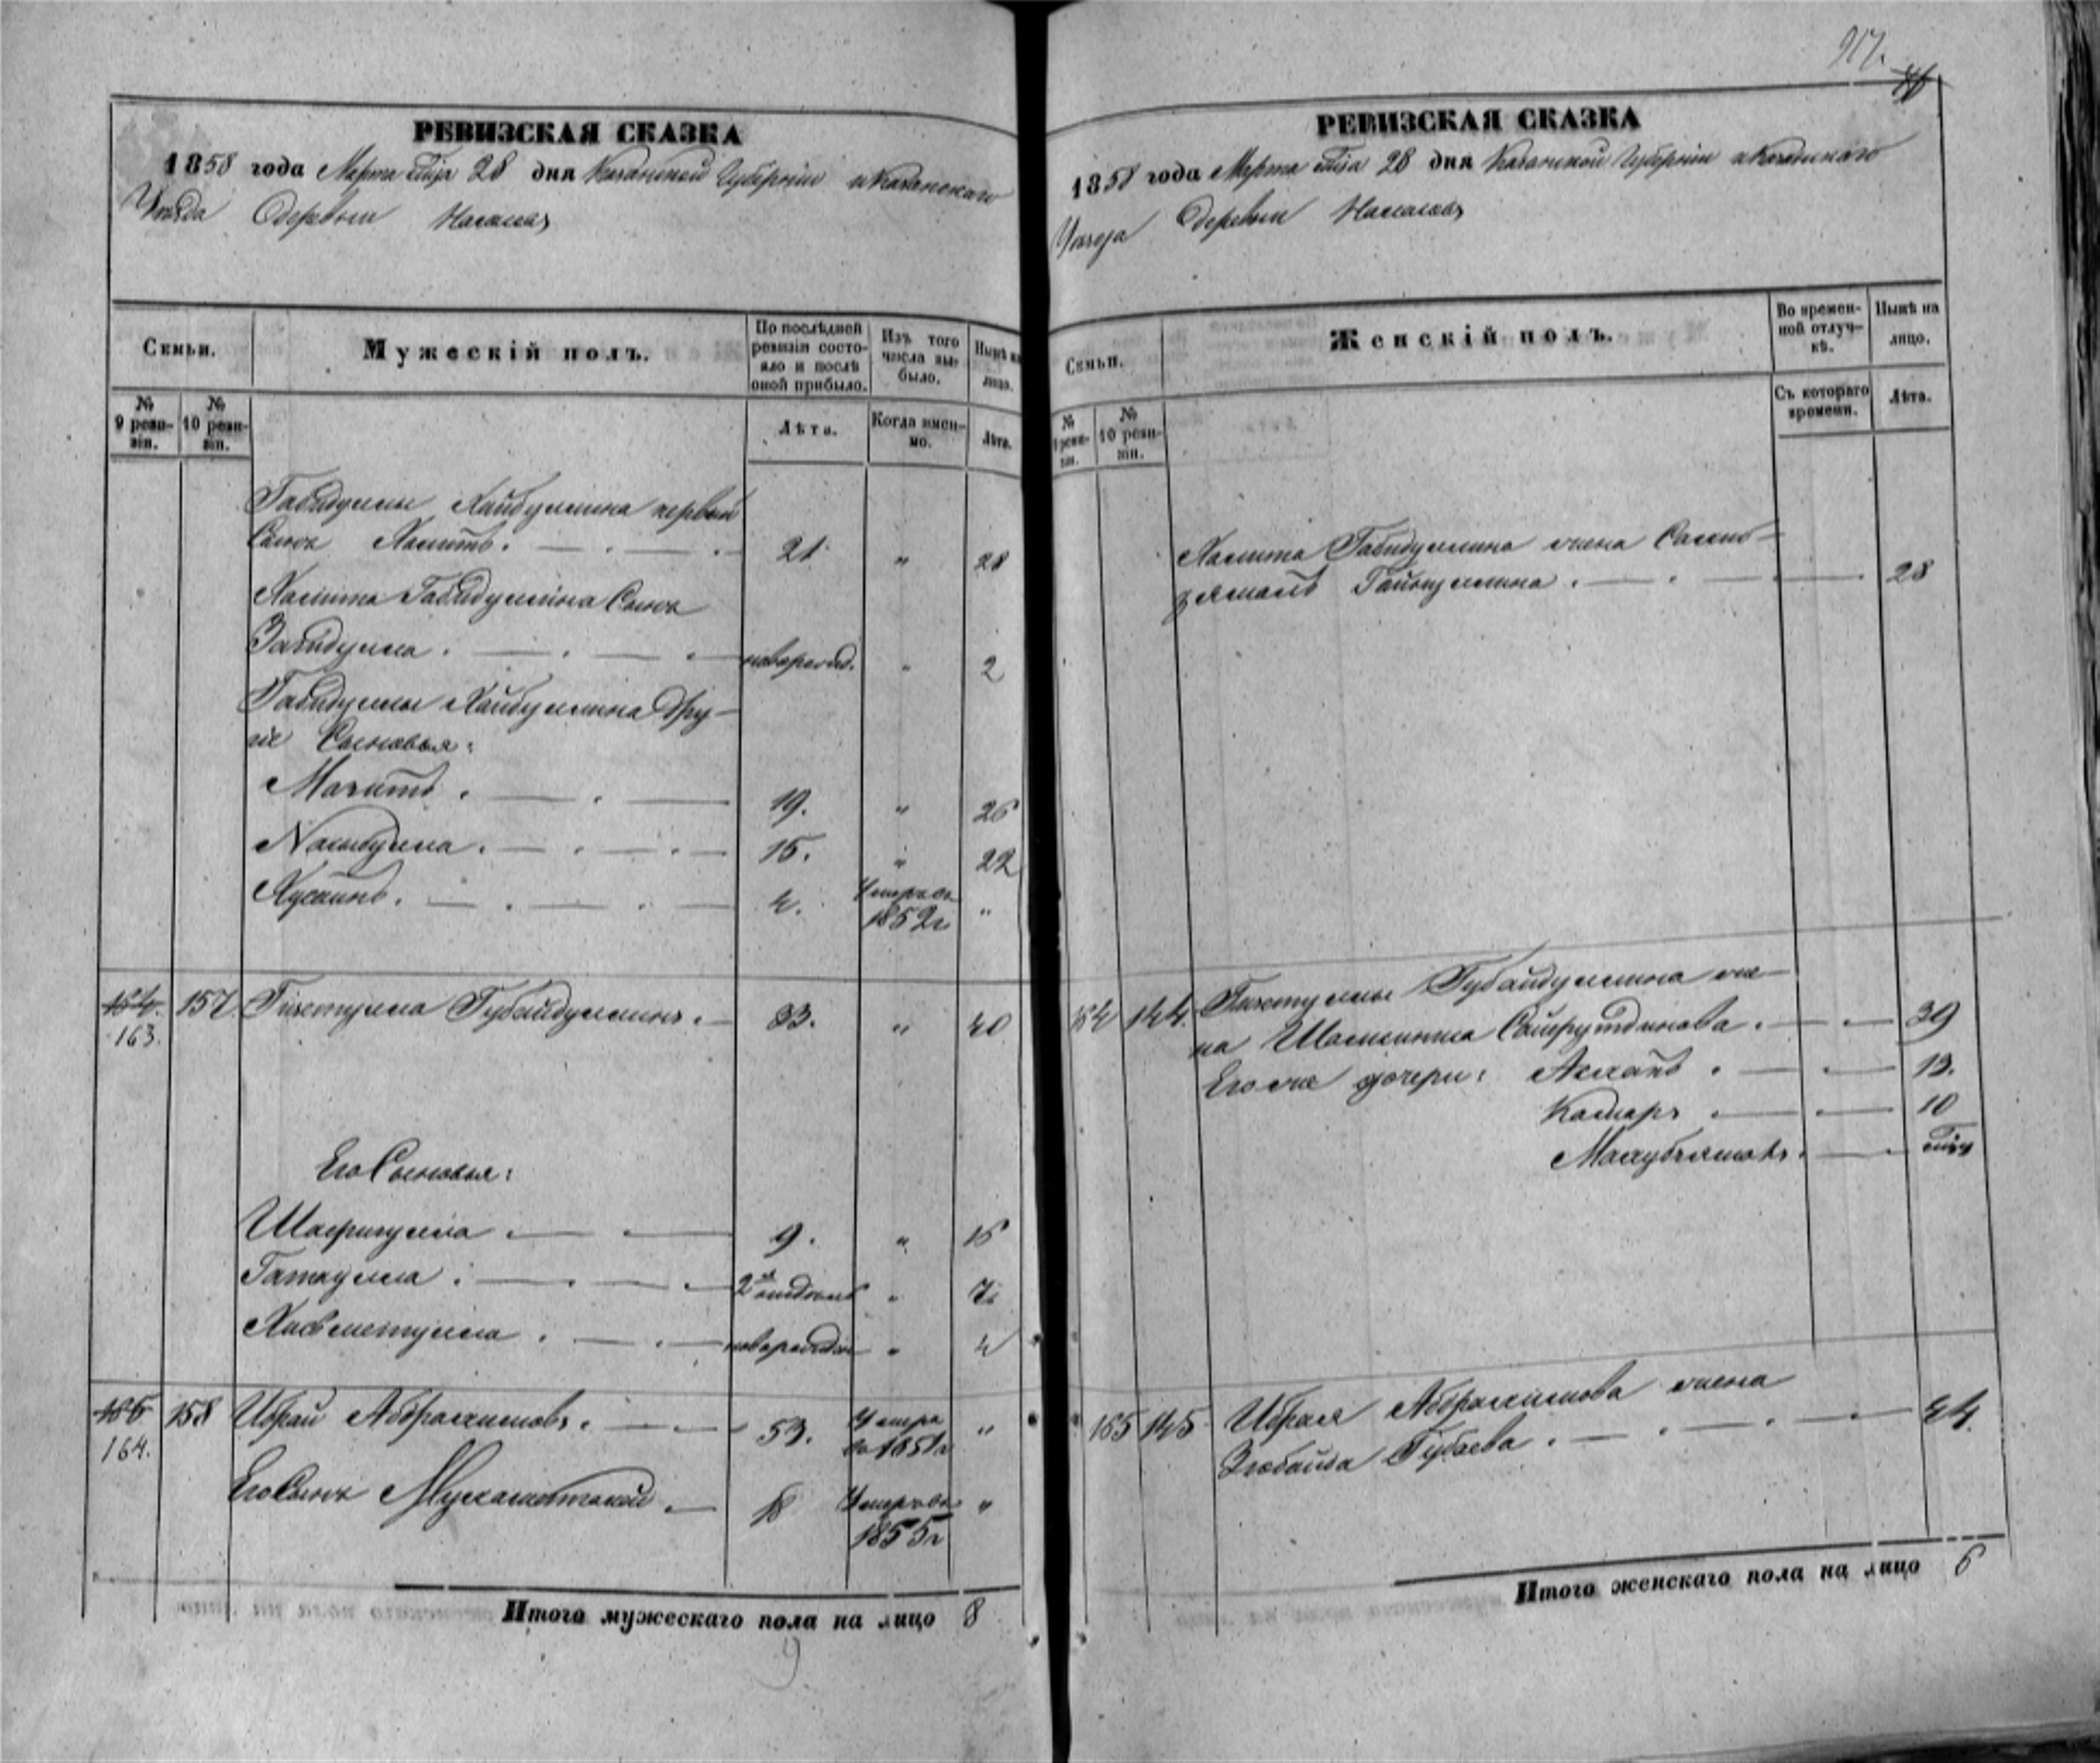 917.
46
РЕВИЗСКАЯ СКАЗКА
1858 года Марта м-ца 28 дня Казанской Губерніи и Казанскаго
Уѣзда Деревни
Семьи.
Мужескій полъ.
По послѣдней ревизіи состояло и послѣ оной прибыло.
Изъ того числа выбыло.
Нынѣ на лицо.
№ 9 ревизіи.
№ 10 ревизіи.
Лѣта.
Когда именно.
Лѣта.
Габидуллы Хайбуллина первый
Сынъ Хамитъ. 21. " 28
Хамита Габидуллина Сынъ
Загидулла. новорожд. " 2
Габидуллы Хайбуллина дру-
гіе Сыновья:
Мазитъ. 19. " 26
15. " 22
Хусаинъ. 4. Умеръ въ 1852 г "
154. 163. 157 Гизетулла Губайдуллинъ. 33. " 40
Его Сыновья:
Шафигулла. 9. " 16
Гатаулла. 2 " 7
новорожден "
155 164. 158 Ибрай Абдрахимовъ. 53. Умеръ въ 1851 г "
Его Сынъ 18 Умеръ въ 1855 г "
Итого мужескаго пола на лицо 8
9
РЕВИЗСКАЯ СКАЗКА
1858 года Марта м-ца 28 дня Казанской Губерніи и Казанскаго
Уѣзда Деревни
Семьи.
Женскій полъ.
Во временной отлучкѣ.
Нынѣ на лицо.
№ 9 ревизіи.
№ 10 ревизіи.
Съ котораго времени.
Лѣта.
Хамита Габидуллина жена
Гайнуллина. 28
154 144. Гизетуллы Губайдуллина же-
на Сайфутдинова. 39
Его же дочери: 13.
Камаръ 10
165 145 Ибрая Абдрахимова жена
Зюбайда Губаева. 44.
Итого женскаго пола на лицо 6